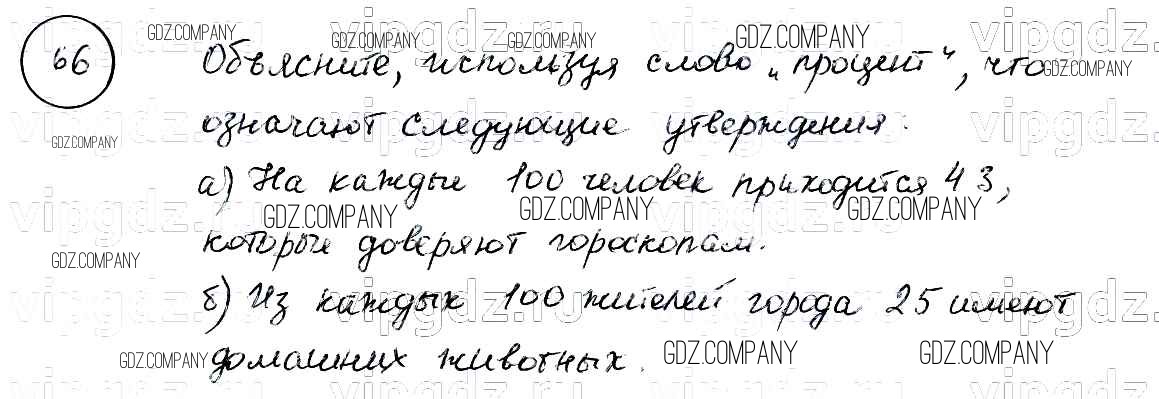 66
Объясните, используя слово „процент", что
означают следующие утверждения.
а) На каждые 100 человек приходится 43,
которые доверяют гороскопам.
б) Из каждых 100 жителей города 25 имеют
домашних животных.
vipgdz.ru
GDZ.COMPANY